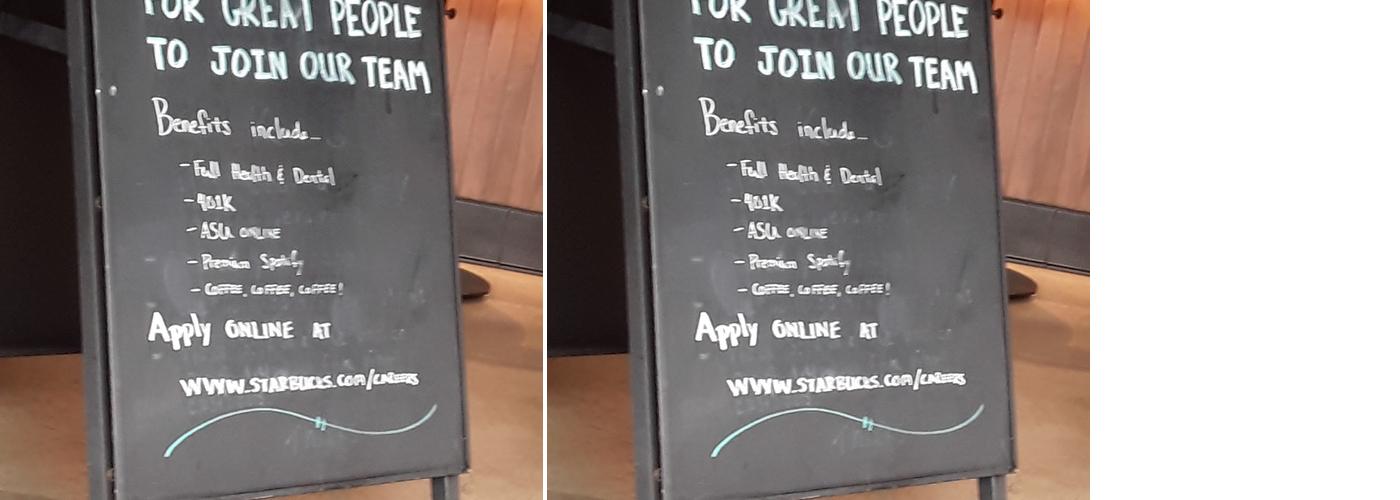 FOR GREAT PEOPLE
TO JOIN OUR TEAM
Benefits include...
- Full Health & Dental
- 401K
- ASU ONLINE
- Premium Spotify
- COFFEE, COFFEE, COFFEE!
Apply ONLINE AT
WWW.STARBUCKS.COM/CAREERS
FOR GREAT PEOPLE
TO JOIN OUR TEAM
Benefits include...
- Full Health & Dental
- 401K
- ASU ONLINE
- Premium Spotify
- COFFEE, COFFEE, COFFEE!
Apply ONLINE AT
WWW.STARBUCKS.COM/CAREERS